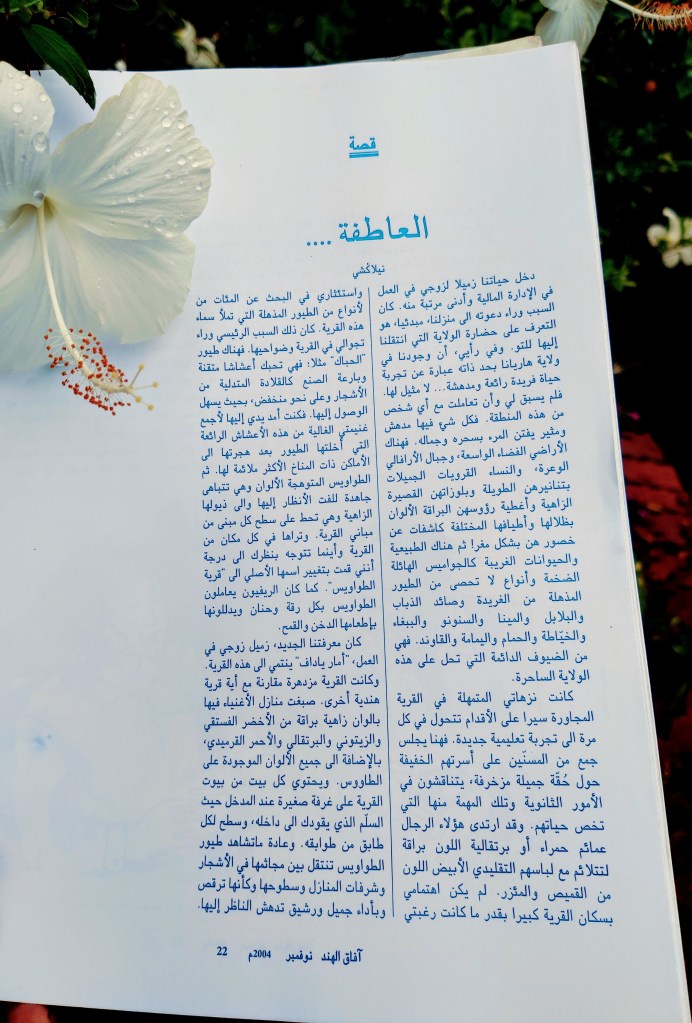 قصة
العاطفة ....
نيلاكشي
دخل حياتنا زميلا لزوجي في العمل
في الإدارة المالية وأدنى مرتبة منه. كان
السبب وراء دعوته الى منزلنا، مبدئيا، هو
التعرف على حضارة الولاية التي انتقلنا
إليها للتو. وفي رأيي، أن وجودنا في
ولاية هاريانا بحد ذاته عبارة عن تجربة
حياة فريدة رائعة ومدهشة... لا مثيل لها.
فلم يسبق لي وأن تعاملت مع أي شخص
من هذه المنطقة. فكل شيء فيها مدهش
ومثير يفتن المرء بسحره وجماله. فهناك
الأراضي الفضاء الواسعة، وجبال الأرافالي
الوعرة، والنساء القرويات الجميلات
بتنانيرهن الطويلة وبلوزاتهن القصيرة
الزاهية وأغطية رؤوسهن البراقة الألوان
بظلالها وأطيافها المختلفة كاشفات عن
خصور هن بشكل مغر! ثم هناك الطبيعية
والحيوانات الغريبة كالجواميس الهائلة
الضخمة وأنواع لا تحصى من الطيور
المذهلة من الغريدة وصائد الذباب
والبلابل والمينا والسنونو والببغاء
والخيّاطة والحمام واليمامة والقاوند. فهي
من الضيوف الدائمة التي تحل على هذه
الولاية الساحرة.
كانت نزهاتي المتمهلة في القرية
المجاورة سيرا على الأقدام تتحول في كل
مرة الى تجربة تعليمية جديدة. فهنا يجلس
جمع من المسنّين على أسرتهم الخفيفة
حول حُقّة جميلة مزخرفة، يتناقشون في
الأمور الثانوية وتلك المهمة منها التي
تخص حياتهم. وقد ارتدى هؤلاء الرجال
عمائم حمراء أو برتقالية اللون براقة
لتتلائم مع لباسهم التقليدي الأبيض اللون
من القميص والمئزر. لم يكن اهتمامي
بسكان القرية كبيرا بقدر ما كانت رغبتي
واستئثاري في البحث عن المئات من
لأنواع من الطيور المذهلة التي تملأ سماء
هذه القرية. كان ذلك السبب الرئيسي وراء
تجوالي في القرية وضواحيها. فهناك طيور
"الحباك" مثلا: فهي تحبك أعشاشا متقنة
وبارعة الصنع كالقلادة المتدلية من
الأشجار وعلى نحو منخفض، بحيث يسهل
الوصول إليها. فكنت أمد يدي إليها لأجمع
غنيمتي الغالية من هذه الأعشاش الرائعة
التي أخلتها الطيور بعد هجرتها الى
الأماكن ذات المناخ الأكثر ملائمة لها. ثم
الطواويس المتوهجة الألوان وهي تتباهى
جاهدة للفت الأنظار إليها والى ذيولها
الزاهية وهي تحط على سطح كل مبنى من
مباني القرية. وتراها في كل مكان من
القرية وأينما تتوجه بنظرك الى درجة
أنني قمت بتغيير اسمها الأصلي الى "قرية
الطواويس". كما كان الريفيون يعاملون
الطواويس بكل رقة وحنان ويدللونها
بإطعامها الدخن والقمح.
كان معرفتنا الجديد، زميل زوجي في
العمل، "أمار ياداف" ينتمي الى هذه القرية.
وكانت القرية مزدهرة مقارنة مع أية قرية
هندية أخرى. صبغت منازل الأغنياء فيها
بالوان زاهية براقة من الأخضر الفستقي
والزيتوني والبرتقالي والأحمر القرميدي،
بالإضافة الى جميع الألوان الموجودة على
الطاووس. ويحتوي كل بيت من بيوت
القرية على غرفة صغيرة عند المدخل حيث
السلّم الذي يقودك الى داخله، وسطح لكل
طابق من طوابقه. وعادة ماتشاهد طيور
الطواويس تنتقل بين مجاثمها في الأشجار
وشرفات المنازل وسطوحها وكأنها ترقص
وبأداء جميل ورشيق تدهش الناظر إليها.
آفاق الهند نوفمبر 2004م 22